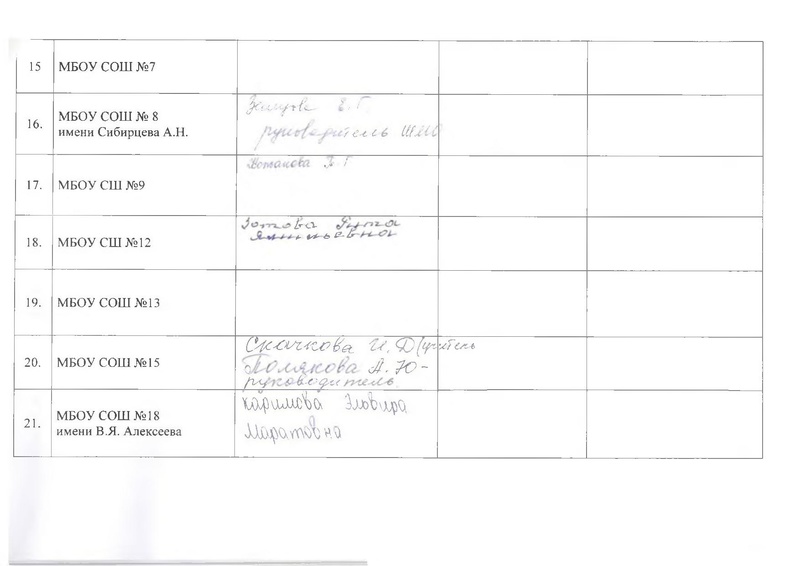 15 МБОУ СОШ №7
16. МБОУ СОШ № 8
имени Сибирцева А.Н.
Е. Г.
руководитель ШМО
17. МБОУ СШ №9
18. МБОУ СШ №12
Зотова
19. МБОУ СОШ №13
20. МБОУ СОШ №15
Скачкова И. Д (учитель
Полякова А. Ю -
руководитель.
21. МБОУ СОШ №18
имени В.Я. Алексеева
Каримова Эльвира
Маратовна